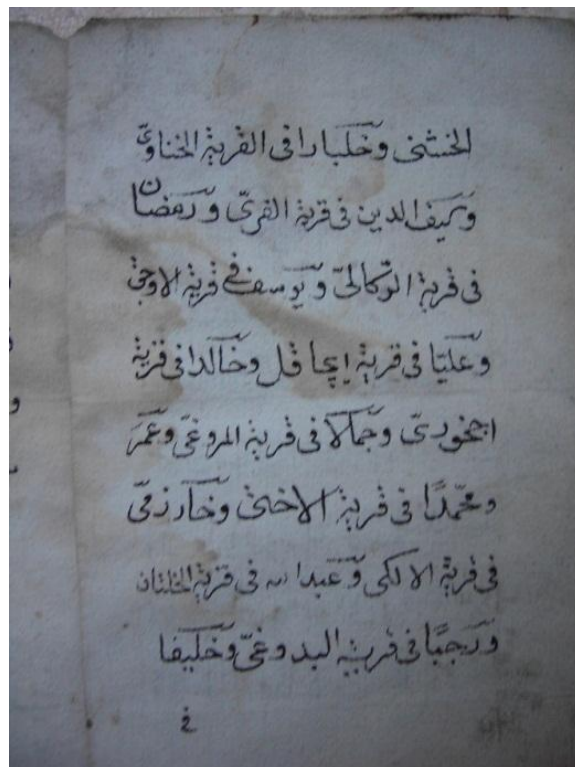 الخشنى وخلبارا فى القرية الخناوىّ
وسيف الدين فى قرية القرىّ ورمضان
فى قرية الوّكالىّ ويوسف فى قرية الاوجىّ
وعليّا فى قرية اپحاقل وخالدا فى قرية
اجخودىّ وجمالا فى قرية المروغىّ وعمر
ومحمّدًا فى قرية الاختىّ وخارزمىّ
فى قرية الالكى وعبد الله فى قرية الختان
ورجبًا فى قرية البدوغىّ وخليفا
فى